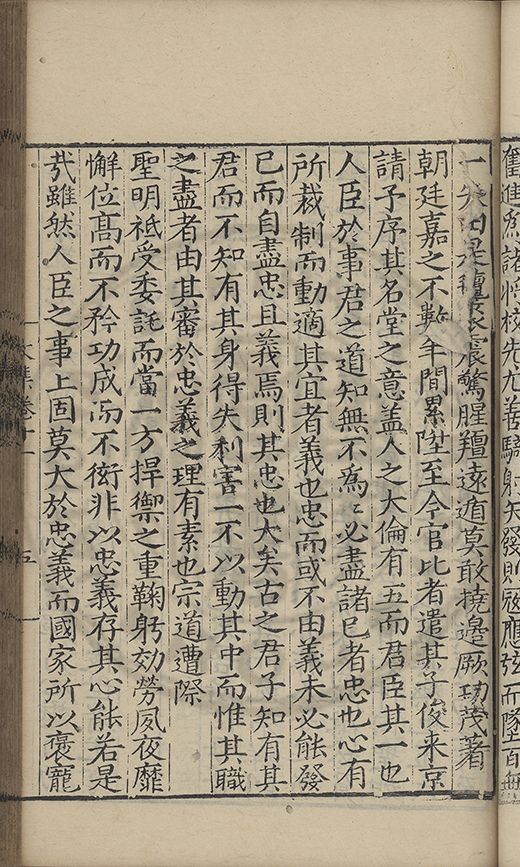 進然諸將校先尤善騎射矢發則應弦而墜百無
一失由是種衆震驚腥羶遠遁莫敢撓邊厥功茂著
朝廷嘉之不數年間累陞至今官比者遣其子俊来京
請予序其名堂之意盖人之大倫有五而君臣其一也
人臣於事君之道知無不爲〻必盡諸已者忠也心有
所裁制而動適其宜者義也忠而或不由義未必能發
已而自盡忠且義焉則其忠也大矣古之君子知有其
君而不知有其身得失利害一不以動其中而惟其職
之盡者由其審於忠義之理有素也宗道遭際
聖明祗受委託而當一方捍禦之重鞠躬効勞夙夜靡
懈位高而不矜功成而不衒非以忠義存其心能若是
㢤雖然人臣之事上固莫大於忠義而國家所以褒寵
集卷十一
五